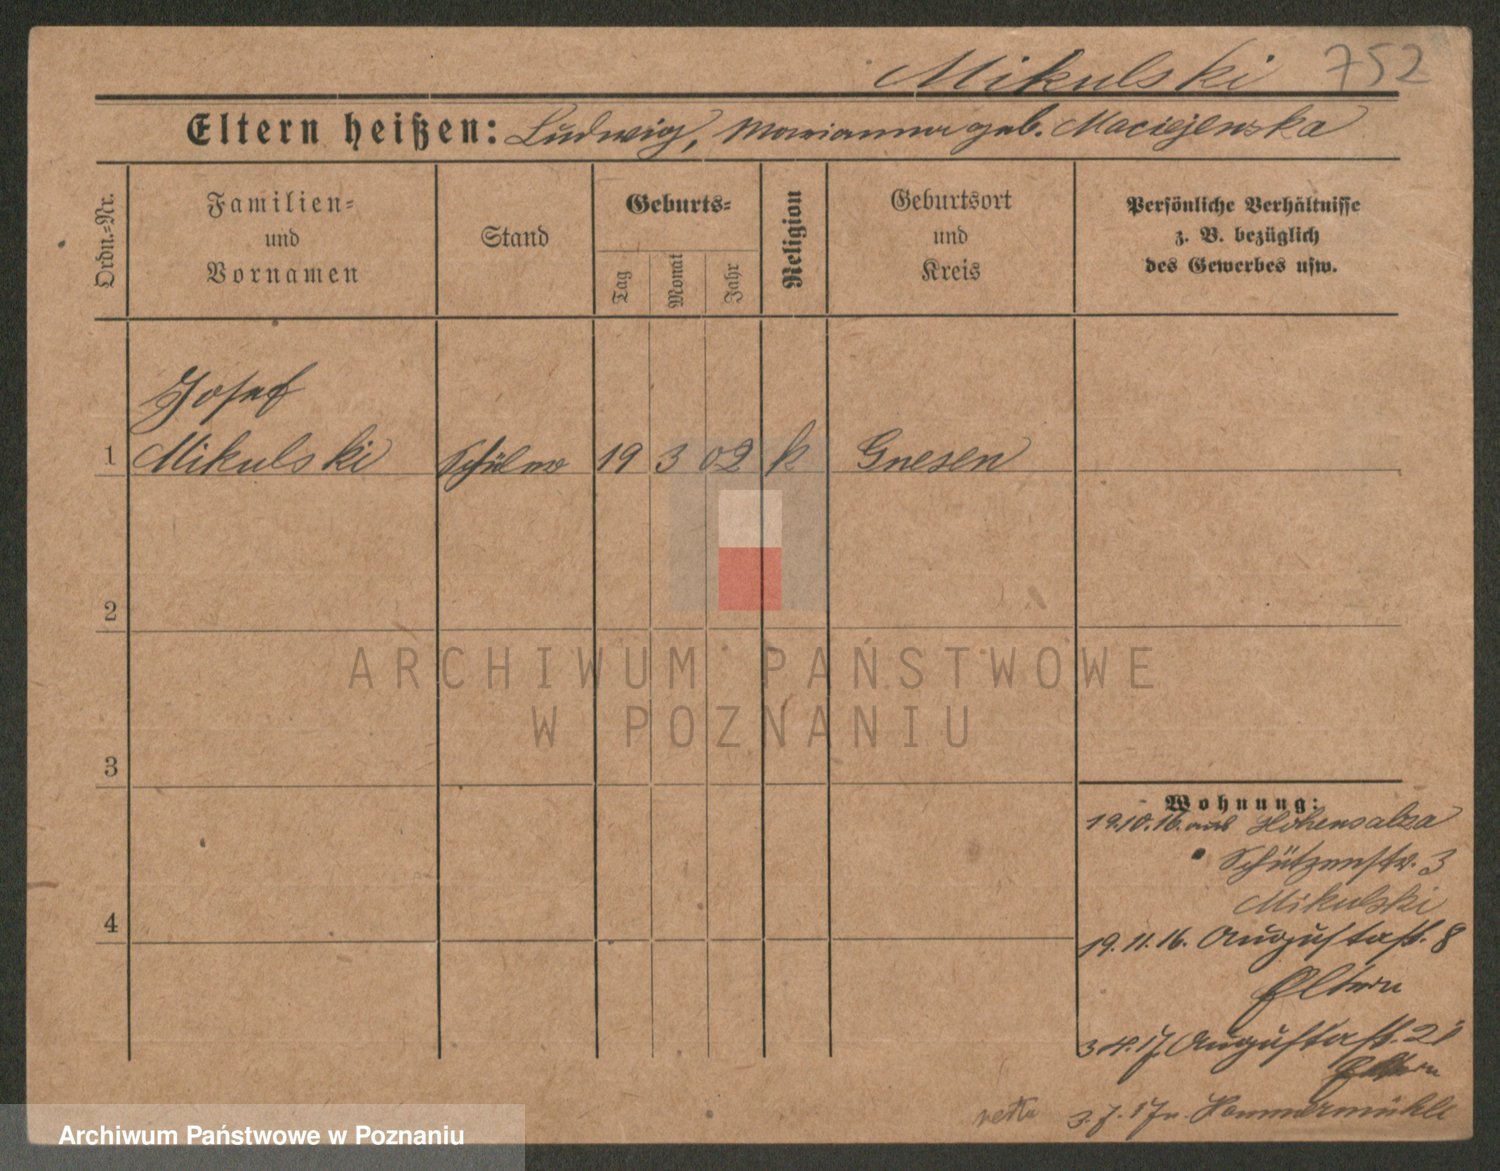 Mikulski 752
Eltern heißen: Ludwig, Marianna geb. Maciejewska
Ordn.-Nr.
Familien-
und
Vornamen
Stand
Geburts-
Tag
Monat
Jahr
Religion
Geburtsort
und
Kreis
Persönliche Verhältnisse
z. B. bezüglich
des Gewerbes usw.
Josef
1 Mikulski Schüler 19 3 02 k Gnesen
2
ARCHIWUM PAŃSTWOWE
W POZNANIU
3
Wohnung:
19.10.16. aus Hohensalza
Schützenstr. 3
Mikulski
4
19.11.16. Augustastr. 8
Eltern
3.4.17. Augustastr. 21
Eltern
3.7.17 n. Hammermühle
Archiwum Państwowe w Poznaniu